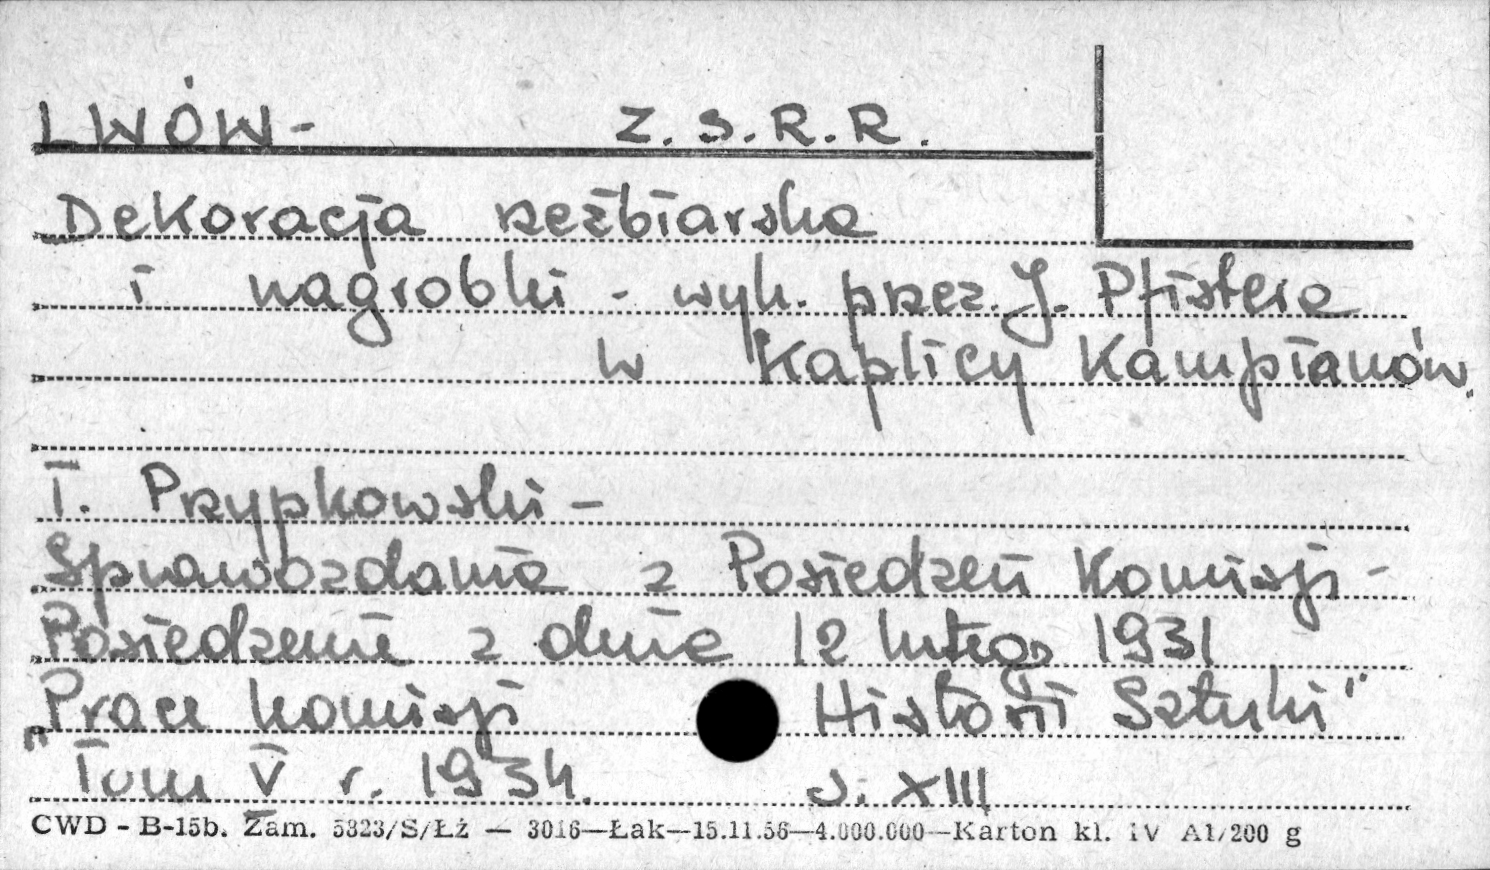 LWÓW - Z.S.R.R.
Dekoracja rzeźbiarska
i nagrobki - wyk. przez J. Pfistera
w Kaplicy Kampianów.
T. Przypkowski -
Sprawozdania z Posiedzeń Komisji -
Posiedzenie z dnia 12 lutego 1931
"Prace Komisji Historii Sztuki"
Tom V r. 1934. s. XIII
CWD - B-15b. Zam. 5323/S/Łż — 3016—Łak—15.11.56—4.000.000—Karton kl. IV A1/200 g